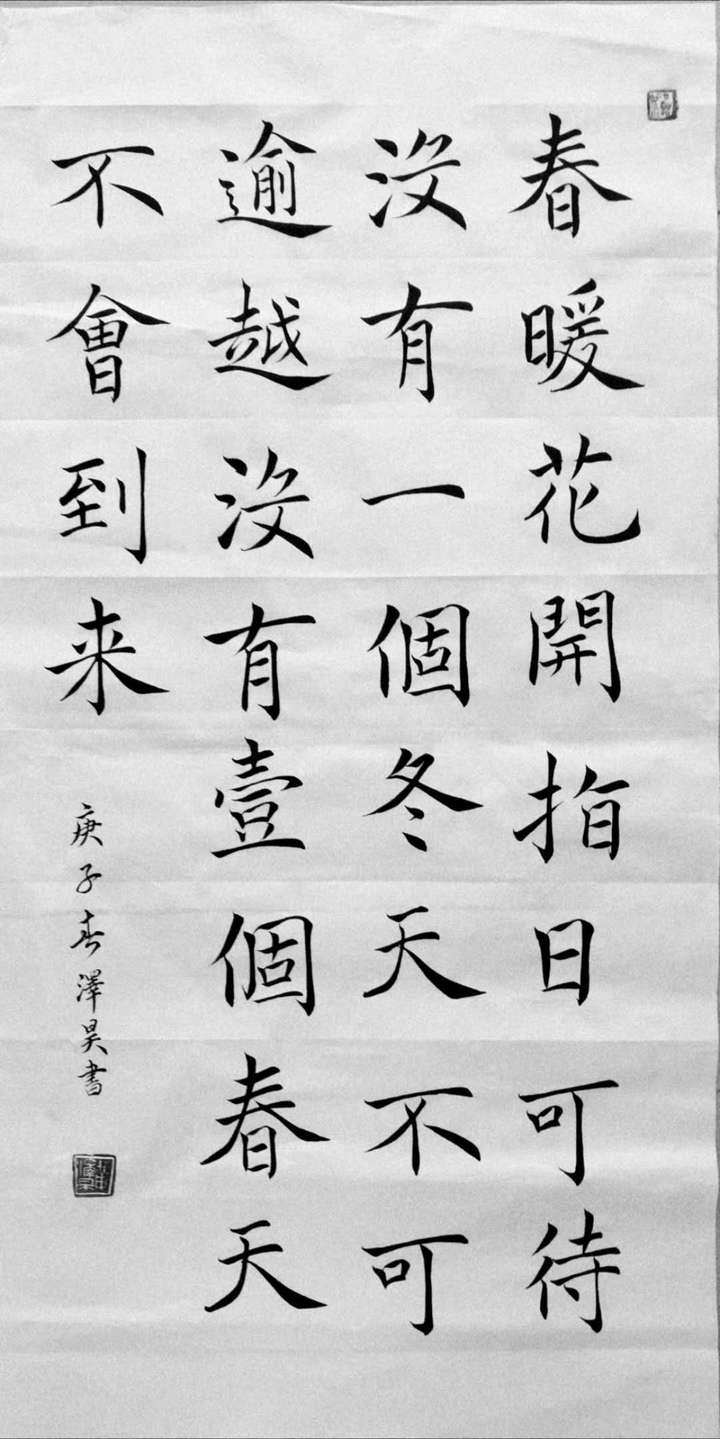 春暖花開指日可待
沒有一個冬天不可
逾越沒有壹個春天
不會到来
庚子春澤昊書